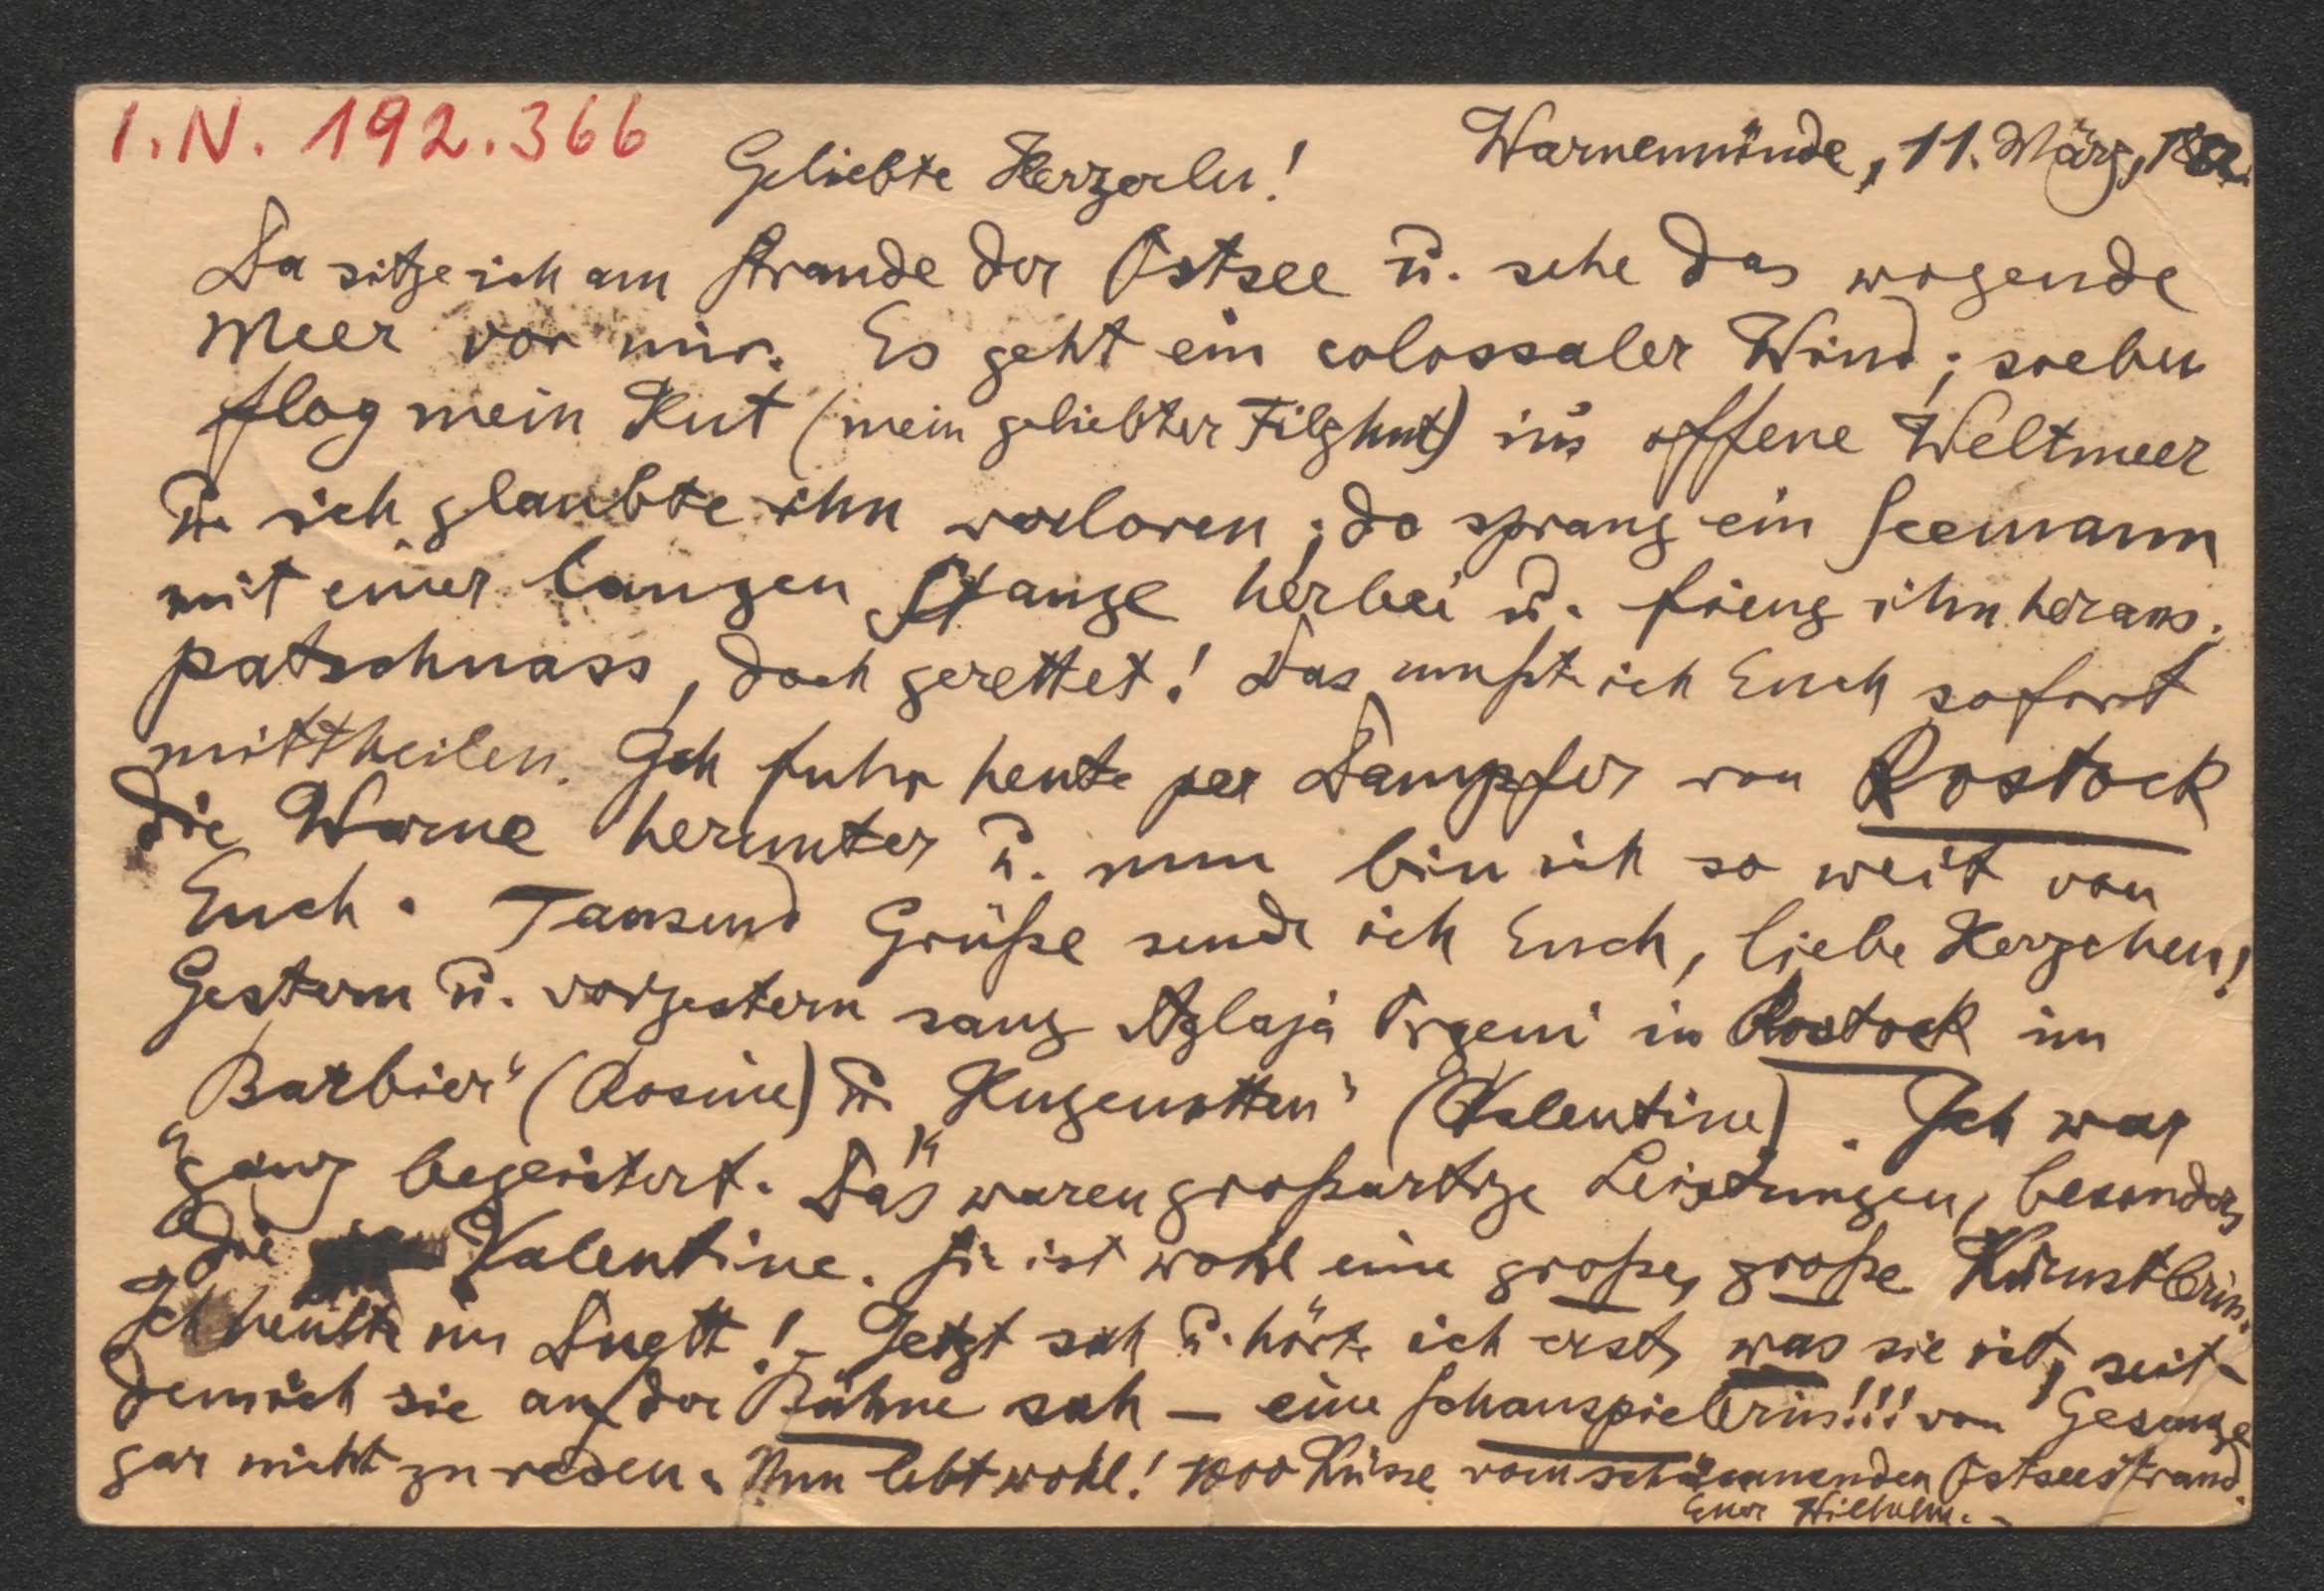 I.N. 192.366
Warnemünde, 11. März, 188
Geliebte Herzerln!
Da sitze ich am Strande der Ostsee u. sehe das wogende
Meer vor mir. Es geht ein colossaler Wind; soeben
flog mein Hut (mein geliebter Filzhut) in's offene Weltmeer
u. ich glaubte ihn verloren; da sprang ein Seemann
mit einer langen Stange herbei u. fieng ihn heraus.
patschnass, doch gerettet! Das mußt ich Euch sofort
mittheilen. Ich fuhr heute per Dampfer von Rostock
die Warne herunter u. nun bin ich so weit von
Euch. Tausend Grüße sende ich Euch, liebe Herzchen!
Gestern u. vorgestern sang Aglaja Orgeni in Rostock im
„Barbier“ (Rosine) u. „Hugenotten“ (Valentine). Ich war
ganz begeistert. Das waren großartige Leistungen, besonders
die Valentine. Sie ist wohl eine große, große Künstlerin.
Ich heulte im Duett! – Jetzt sah u. hörte ich erst, was sie ist, seit-
dem ich sie auf der Bühne sah – eine Schauspielerin!!! von Gesange
gar nicht zu reden. Nun lebt wohl! 1000 Küsse vom schäumenden Ostseestrand.
Euer Wilhelm. –